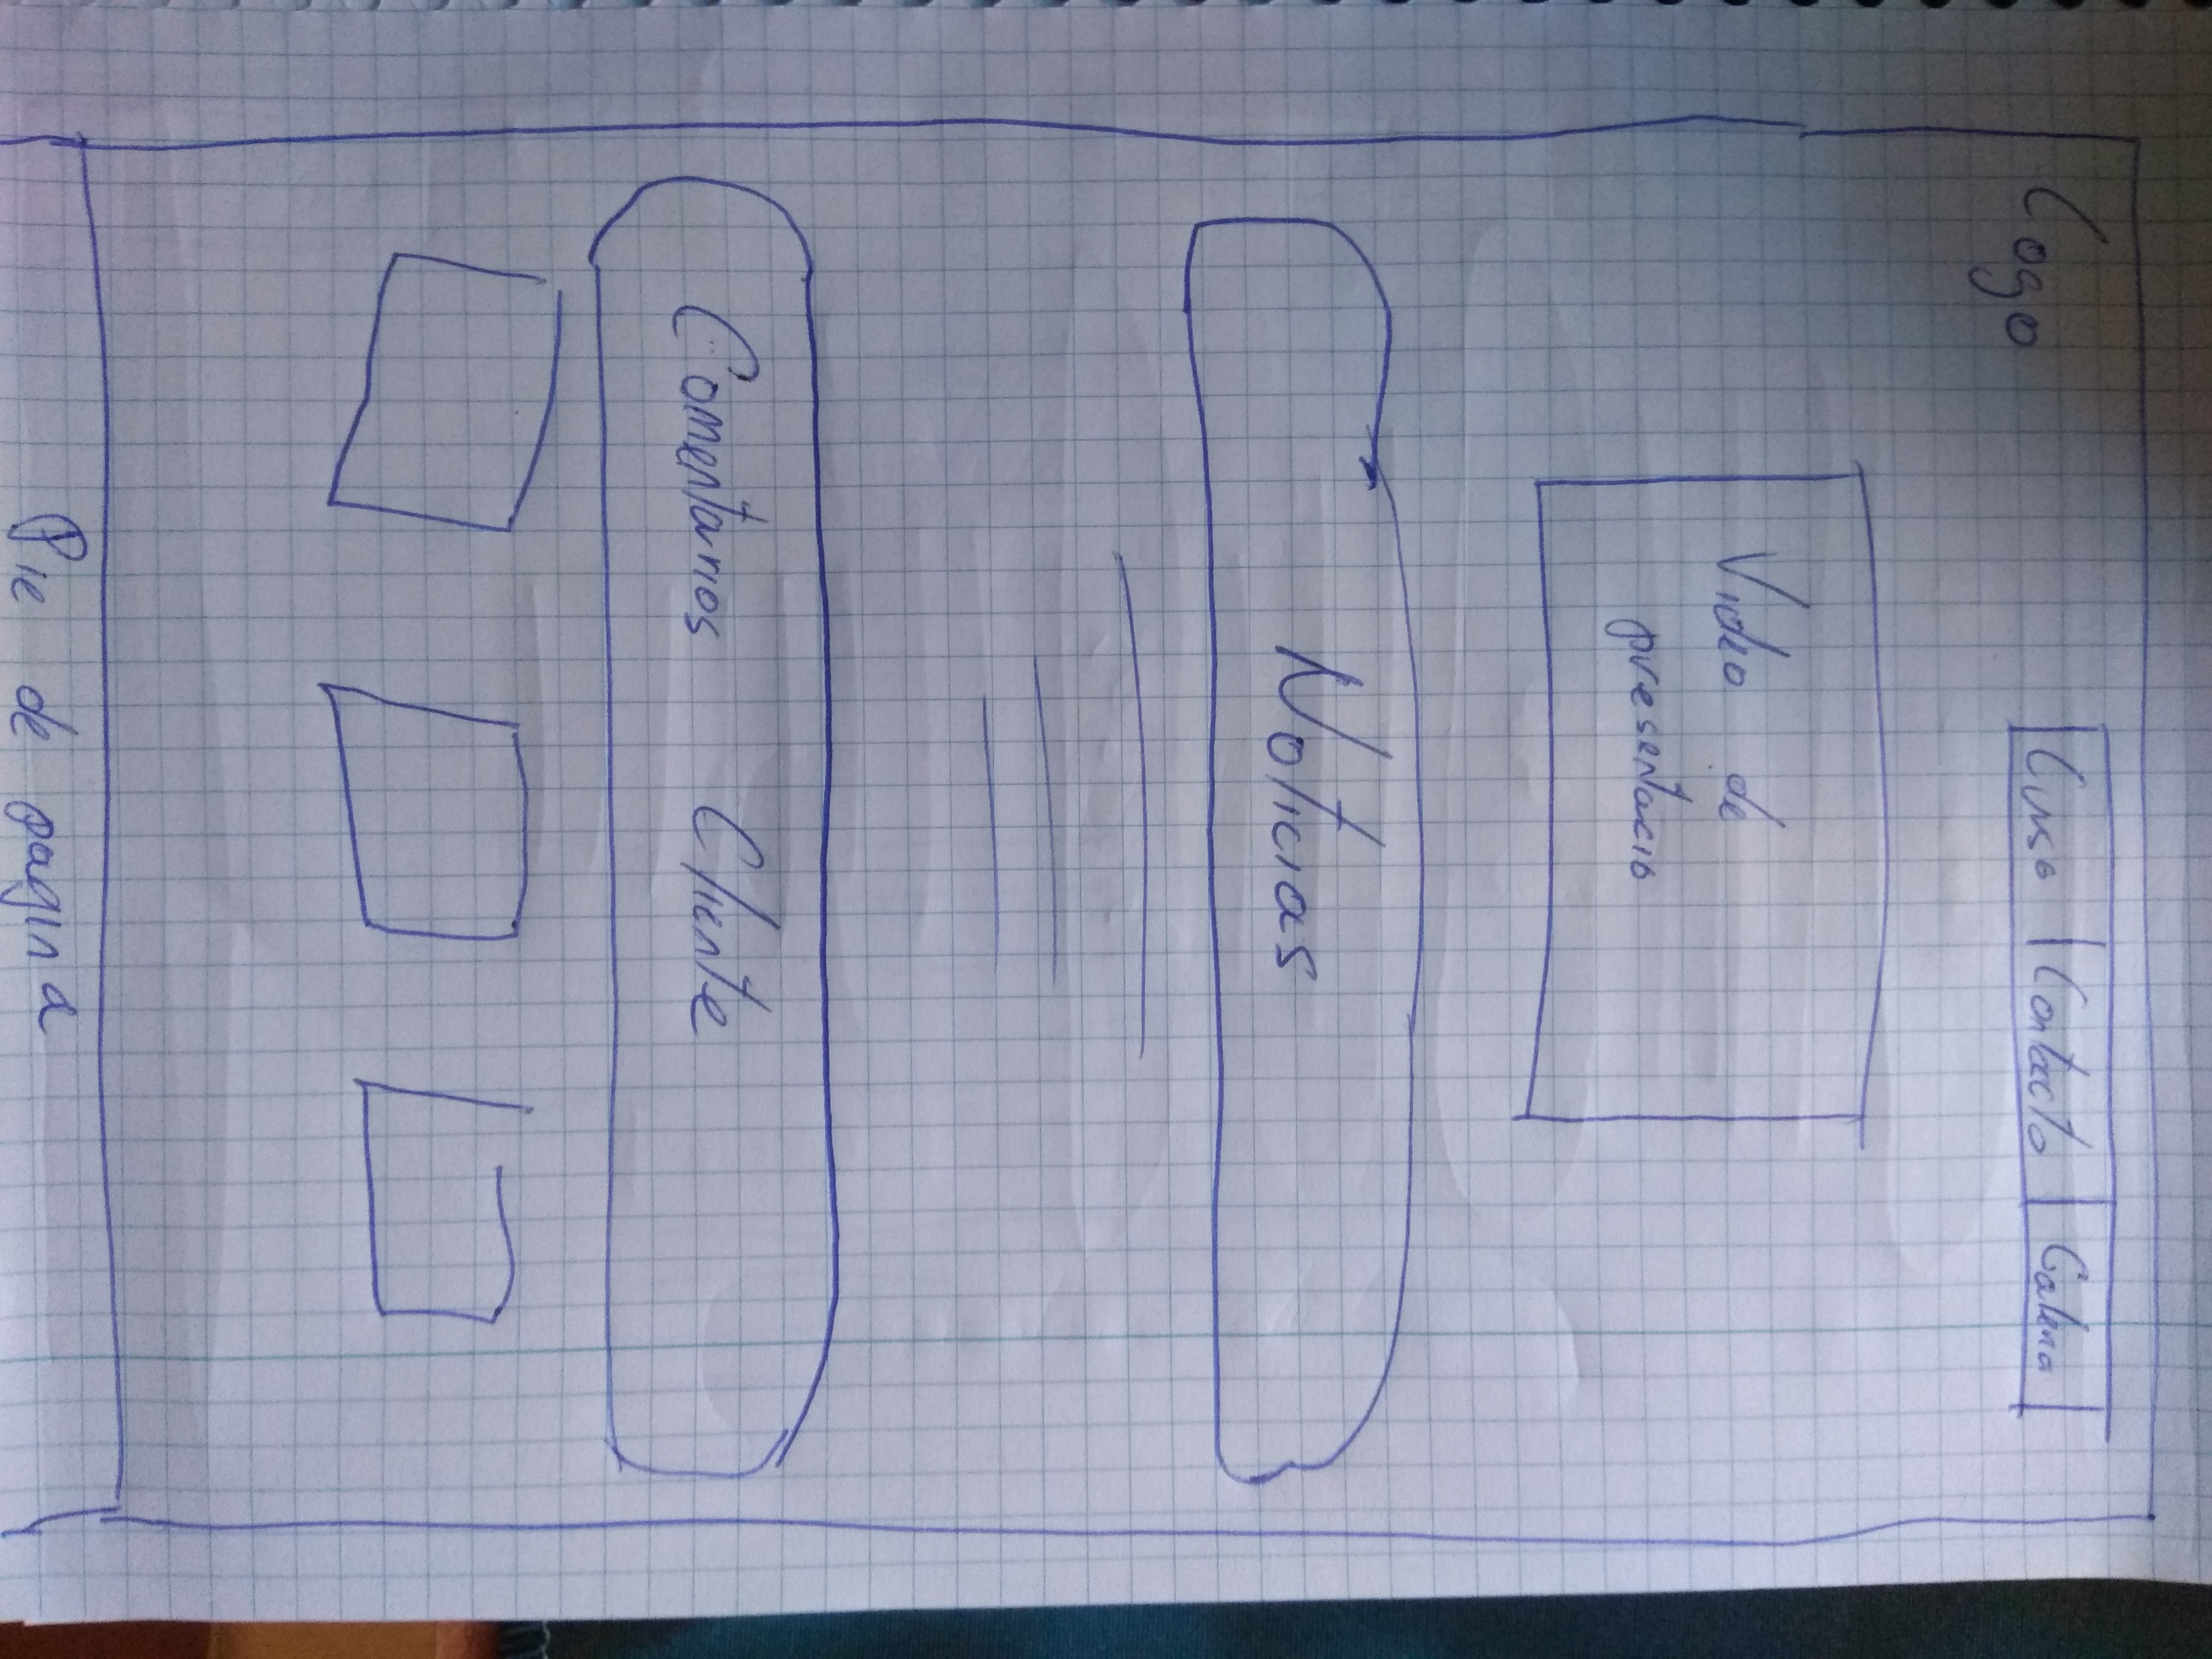 Logo
Curso Contacto Galeria
Video de
presentacio
Noticias
Comentarios Cliente
Pie de pagina